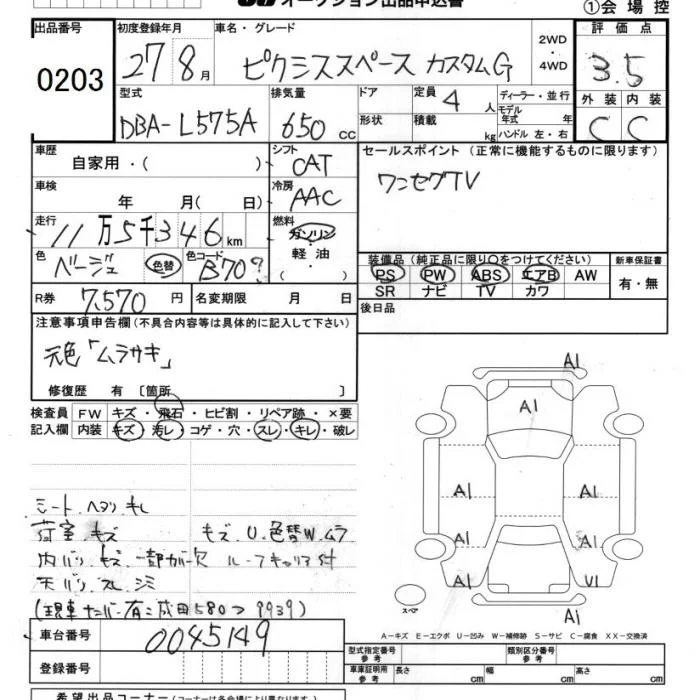 オークション出品申込書
①会場控
出品番号 初度登録年月 車名・グレード 評価点
0203 27 8月 ピクシススペース カスタムG 2WD・4WD 3.5
型式 排気量 ドア 定員 4 人 ディーラー・並行 外装 内装
DBA-L575A 650 cc 形状 積載 kg モデル年式 年 ハンドル 左・右 C C
車歴 自家用・( ) シフト CAT セールスポイント (正常に機能するものに限ります)
車検 年 月( 日) 冷房 AAC ワンセグTV
走行 11万5千346km 燃料 ガソリン・軽油・( )
色 ベージュ 色替 色コード B70? 装備品(純正品に限り○をつけてください) 新車保証書
PS PW ABS エアB AW 有・無
SR ナビ TV カワ
R券 7,570円 名変期限 月 日 後日品
注意事項申告欄(不具合内容等は具体的に記入して下さい)
元色「ムラサキ」
修復歴 有 〔箇所 〕
検査員 FW キズ・飛石・ヒビ割・リペア跡・×要
記入欄 内装 キズ・汚レ・コゲ・穴・スレ・キレ・破レ
A1
A1
A1 A1
A1 A1
A1 U1
スペア
A1
シート ヘタリ キレ
荷室 キズ キズ U 色替W ムラ
内バリ キズ 一部カケ欠 ルーフキャリア付
天バリ スレ シミ
(現車ナンバー有:成田580つ9939)
A-キズ E-エクボ U-凹み W-補修跡 S-サビ C-腐食 XX-交換済
車台番号 0045149 型式指定番号 参考 類別区分番号 参考
登録番号 車庫証明用 参考 長さ cm 幅 cm 高さ cm
希望出品コーナー(コーナーは各会場により異なります)